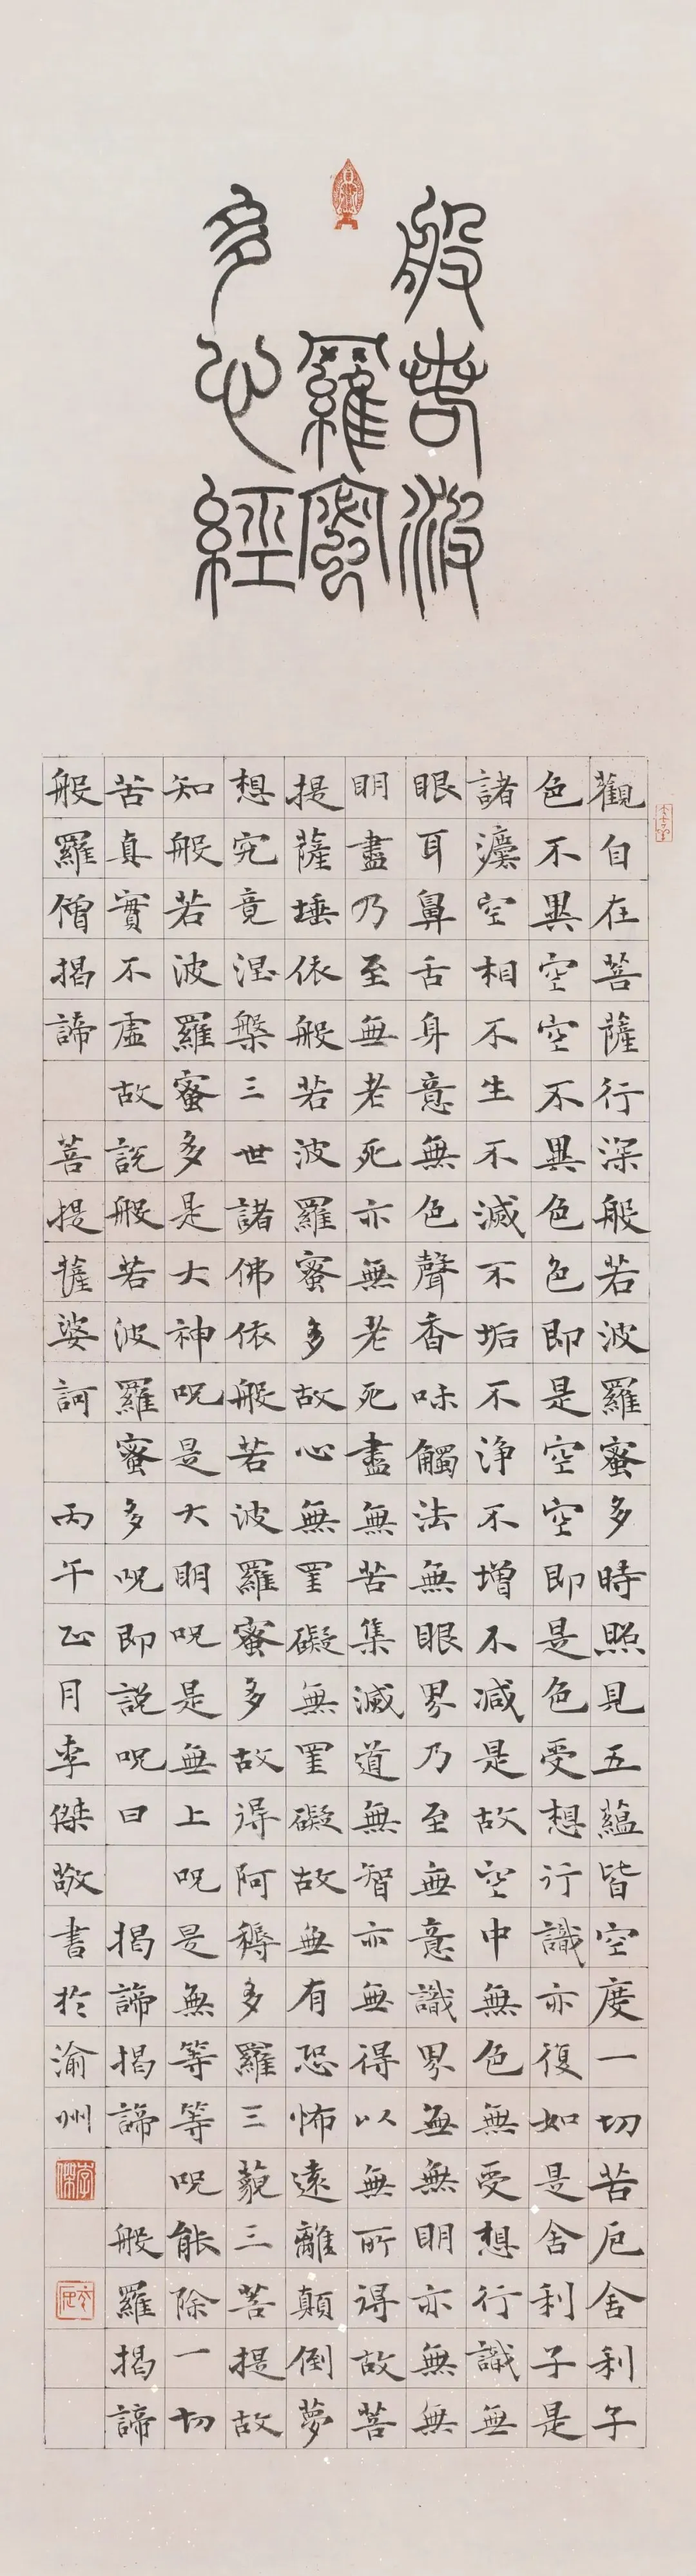 般若波
羅蜜
多心經
觀自在菩薩行深般若波羅蜜多時照見五蘊皆空度一切苦厄舍利子
色不異空空不異色色即是空空即是色受想行識亦復如是舍利子是
諸灋空相不生不滅不垢不浄不增不減是故空中無色無受想行識無
眼耳鼻舌身意無色聲香味觸法無眼界乃至無意識界無無明亦無無
明盡乃至無老死亦無老死盡無苦集滅道無智亦無得以無所得故菩
提薩埵依般若波羅蜜多故心無罣礙無罣礙故無有恐怖遠離顛倒夢
想究竟涅槃三世諸佛依般若波羅蜜多故得阿耨多羅三藐三菩提故
知般若波羅蜜多是大神呪是大明呪是無上呪是無等等呪能除一切
苦真實不虛故說般若波羅蜜多呪即說呪曰 揭諦揭諦 般羅揭諦
般羅僧揭諦 菩提薩婆訶 丙午正月李傑敬書於渝州
李傑